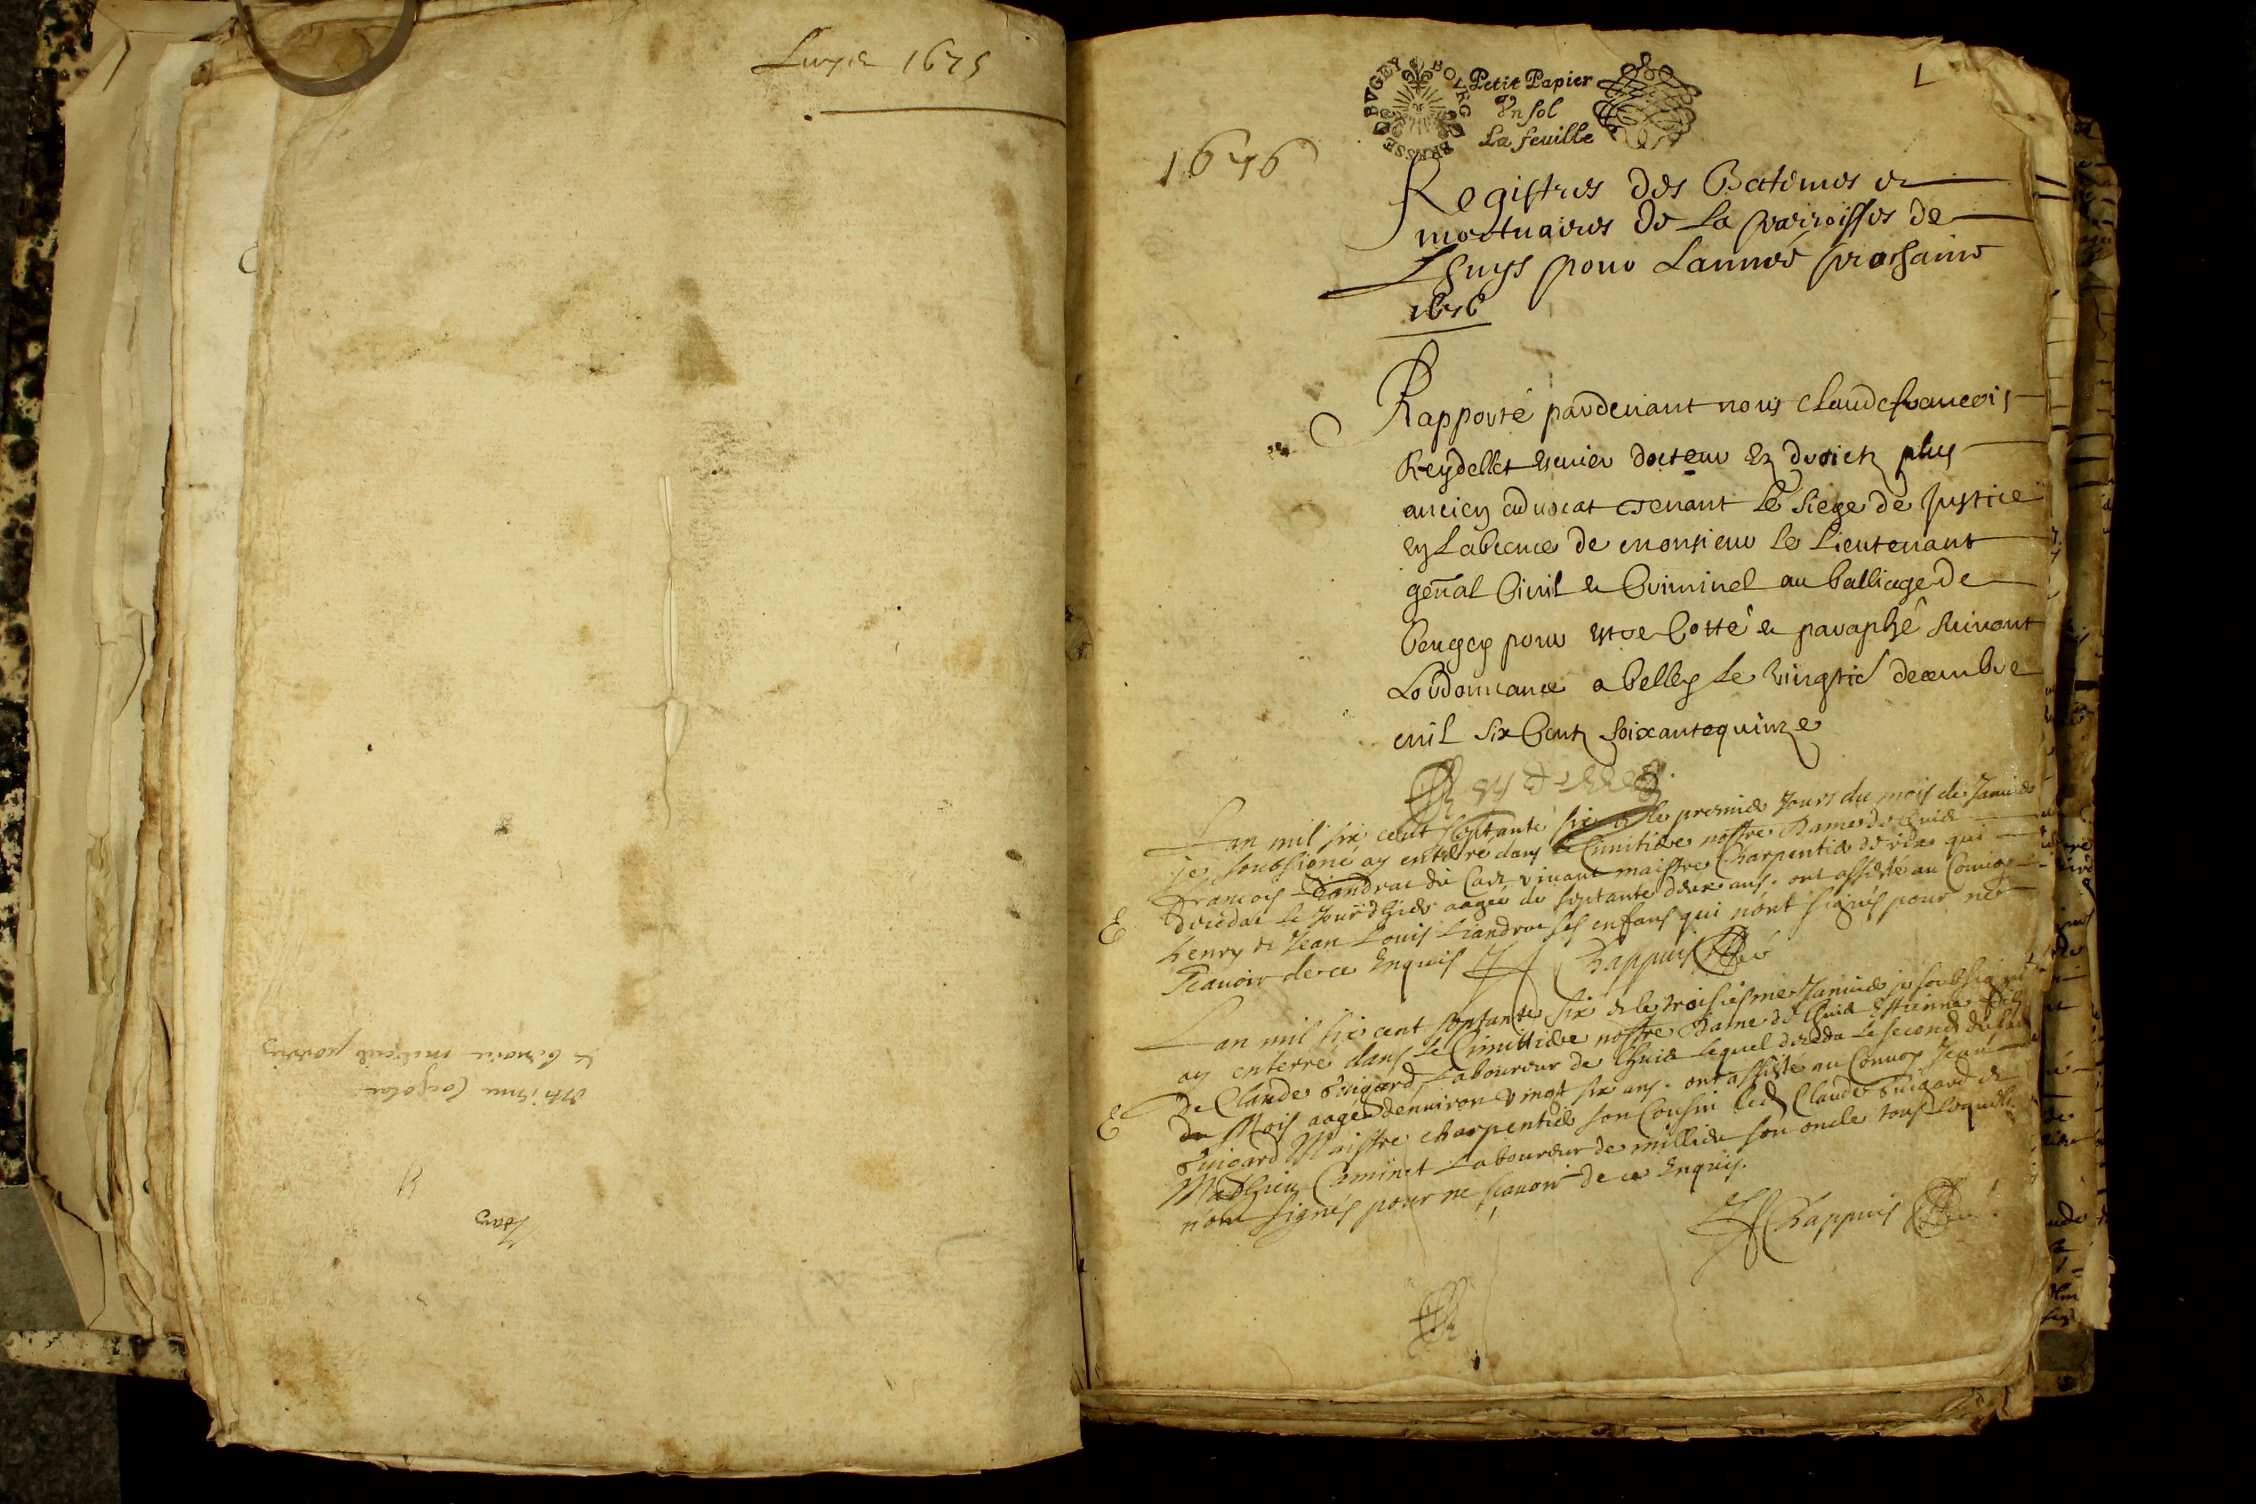 Luyz 1675
1676
BOVRG BRESSE BVGEY
Petit Papier
Vn sol
La feuille
1
Registres des Batemes et
mortuaires de La parroisses de
Lhuys pour Lannee prochaine
1676
Rapporté pardeuant nous Claude francois
Reydellet escuier docteur en droict plus
ancien aduocat tenant le siege de Justice
en Labcence de monsieur le Lieutenant
genal Ciuil et Criminel au balliage de
beugey pour estre Cotté et paraphé suiuant
Lordonnance a belley le vingtie decembre
mil six Cent soixante quinze
Lan mil six cent septante six et le premier Jours du mois de Januier
je soubsigné ay enterré dans le Cimitiere nostre Dame de Luis
francois Liandrat dit vivant maistre Charpentier qui
decedat le Jourdhier aagé de septante deux ans. ont assisté au Convoy
E
henry et Jean Louis Liandrat ses enfans qui nont signés pour ne
scauoir de ce Enquis Chappuis
Lan mil six cent septante six et le troisiesme Januier je soubsigné
ay enterré dans le Cimittiere nostre Dame de Luis Estienne
de Claude Puigard Laboureur de Lhuis lequel deceda le second
E
du Mois aagé denuiron vingt six ans. ont assisté au Conuoy Jean
Puigard Maistre charpentier son Cousin led Claude Puigard et
Mathieu Cominet Laboureur de millieu son oncle tous lesquels
nont signés pour ne scauoir de ce Enquis.
Chappuis